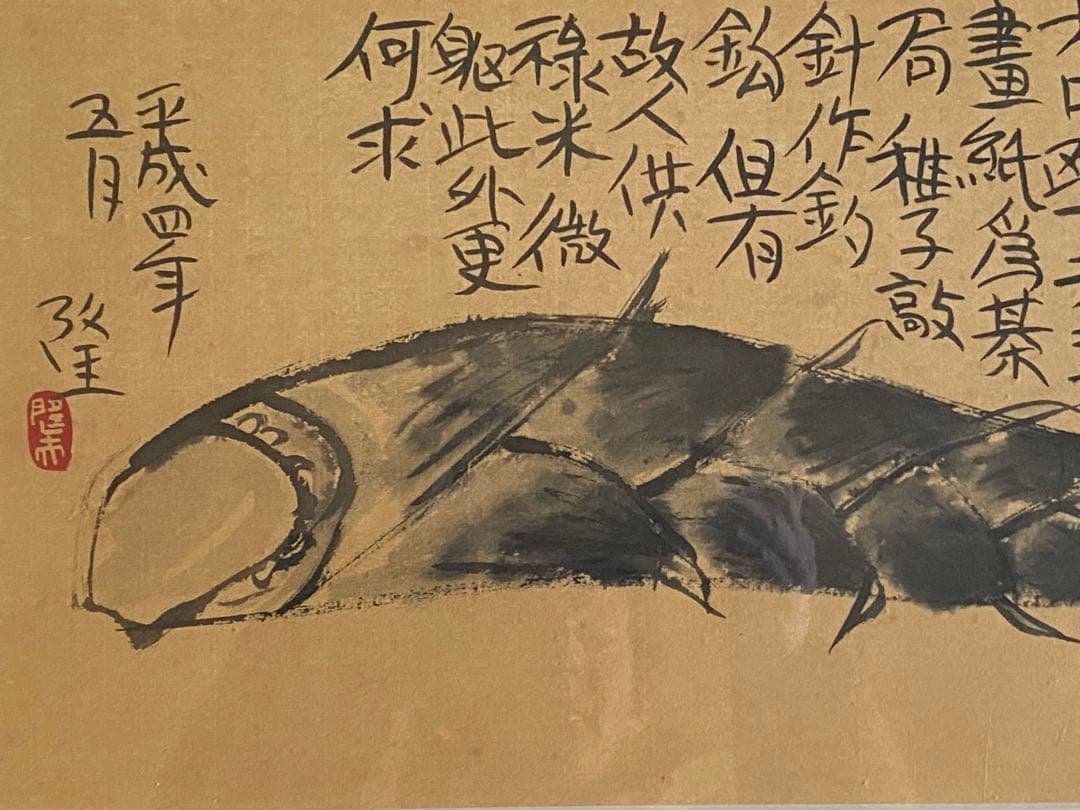 畫紙爲棊
局 稚子敲
針作釣
鈎 但有
故人供
祿米 微
躯此外更
何求
平成四年
五月
隆